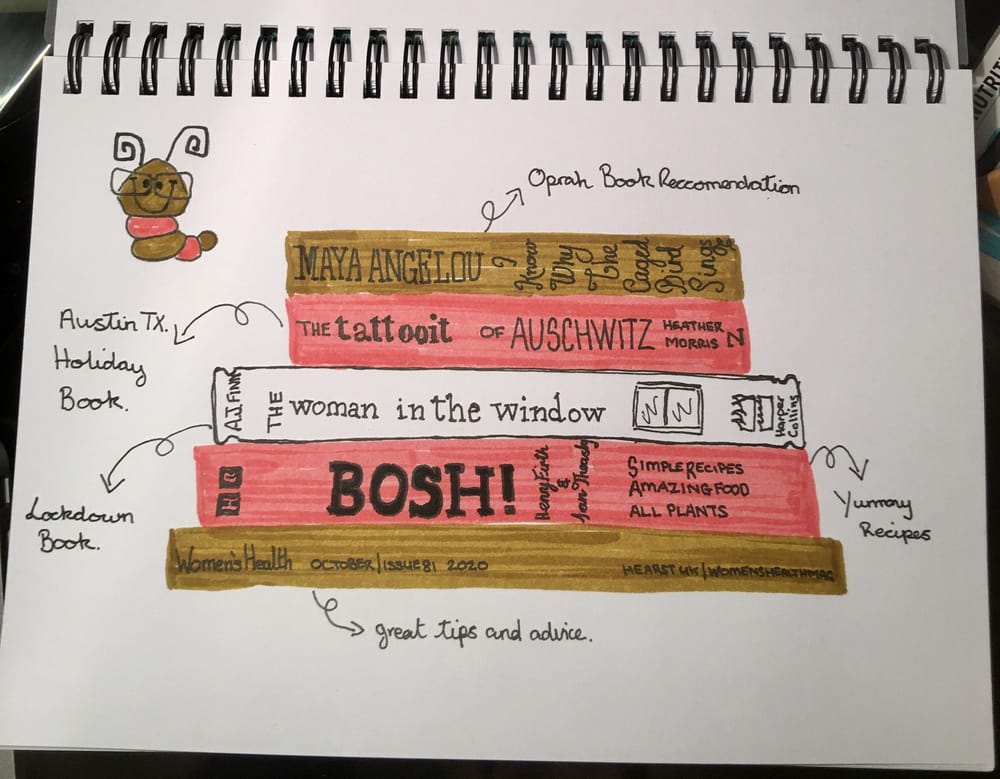 NUTRIT
Oprah Book Reccomendation
MAYA ANGELOU I Know Why The Caged Bird Sings
Austin TX.
Holiday
Book.
THE tattooit OF AUSCHWITZ HEATHER
MORRIS
AJ FINN THE woman in the window Harper
Collins
HQ BOSH! Henry Firth
&
Ian Theasby
SIMPLE RECIPES
AMAZING FOOD
ALL PLANTS
Lockdown
Book.
Yummy
Recipes
Women's Health OCTOBER/ISSUE 81 2020 HEARST UK/WOMENSHEALTHMAG
great tips and advice.